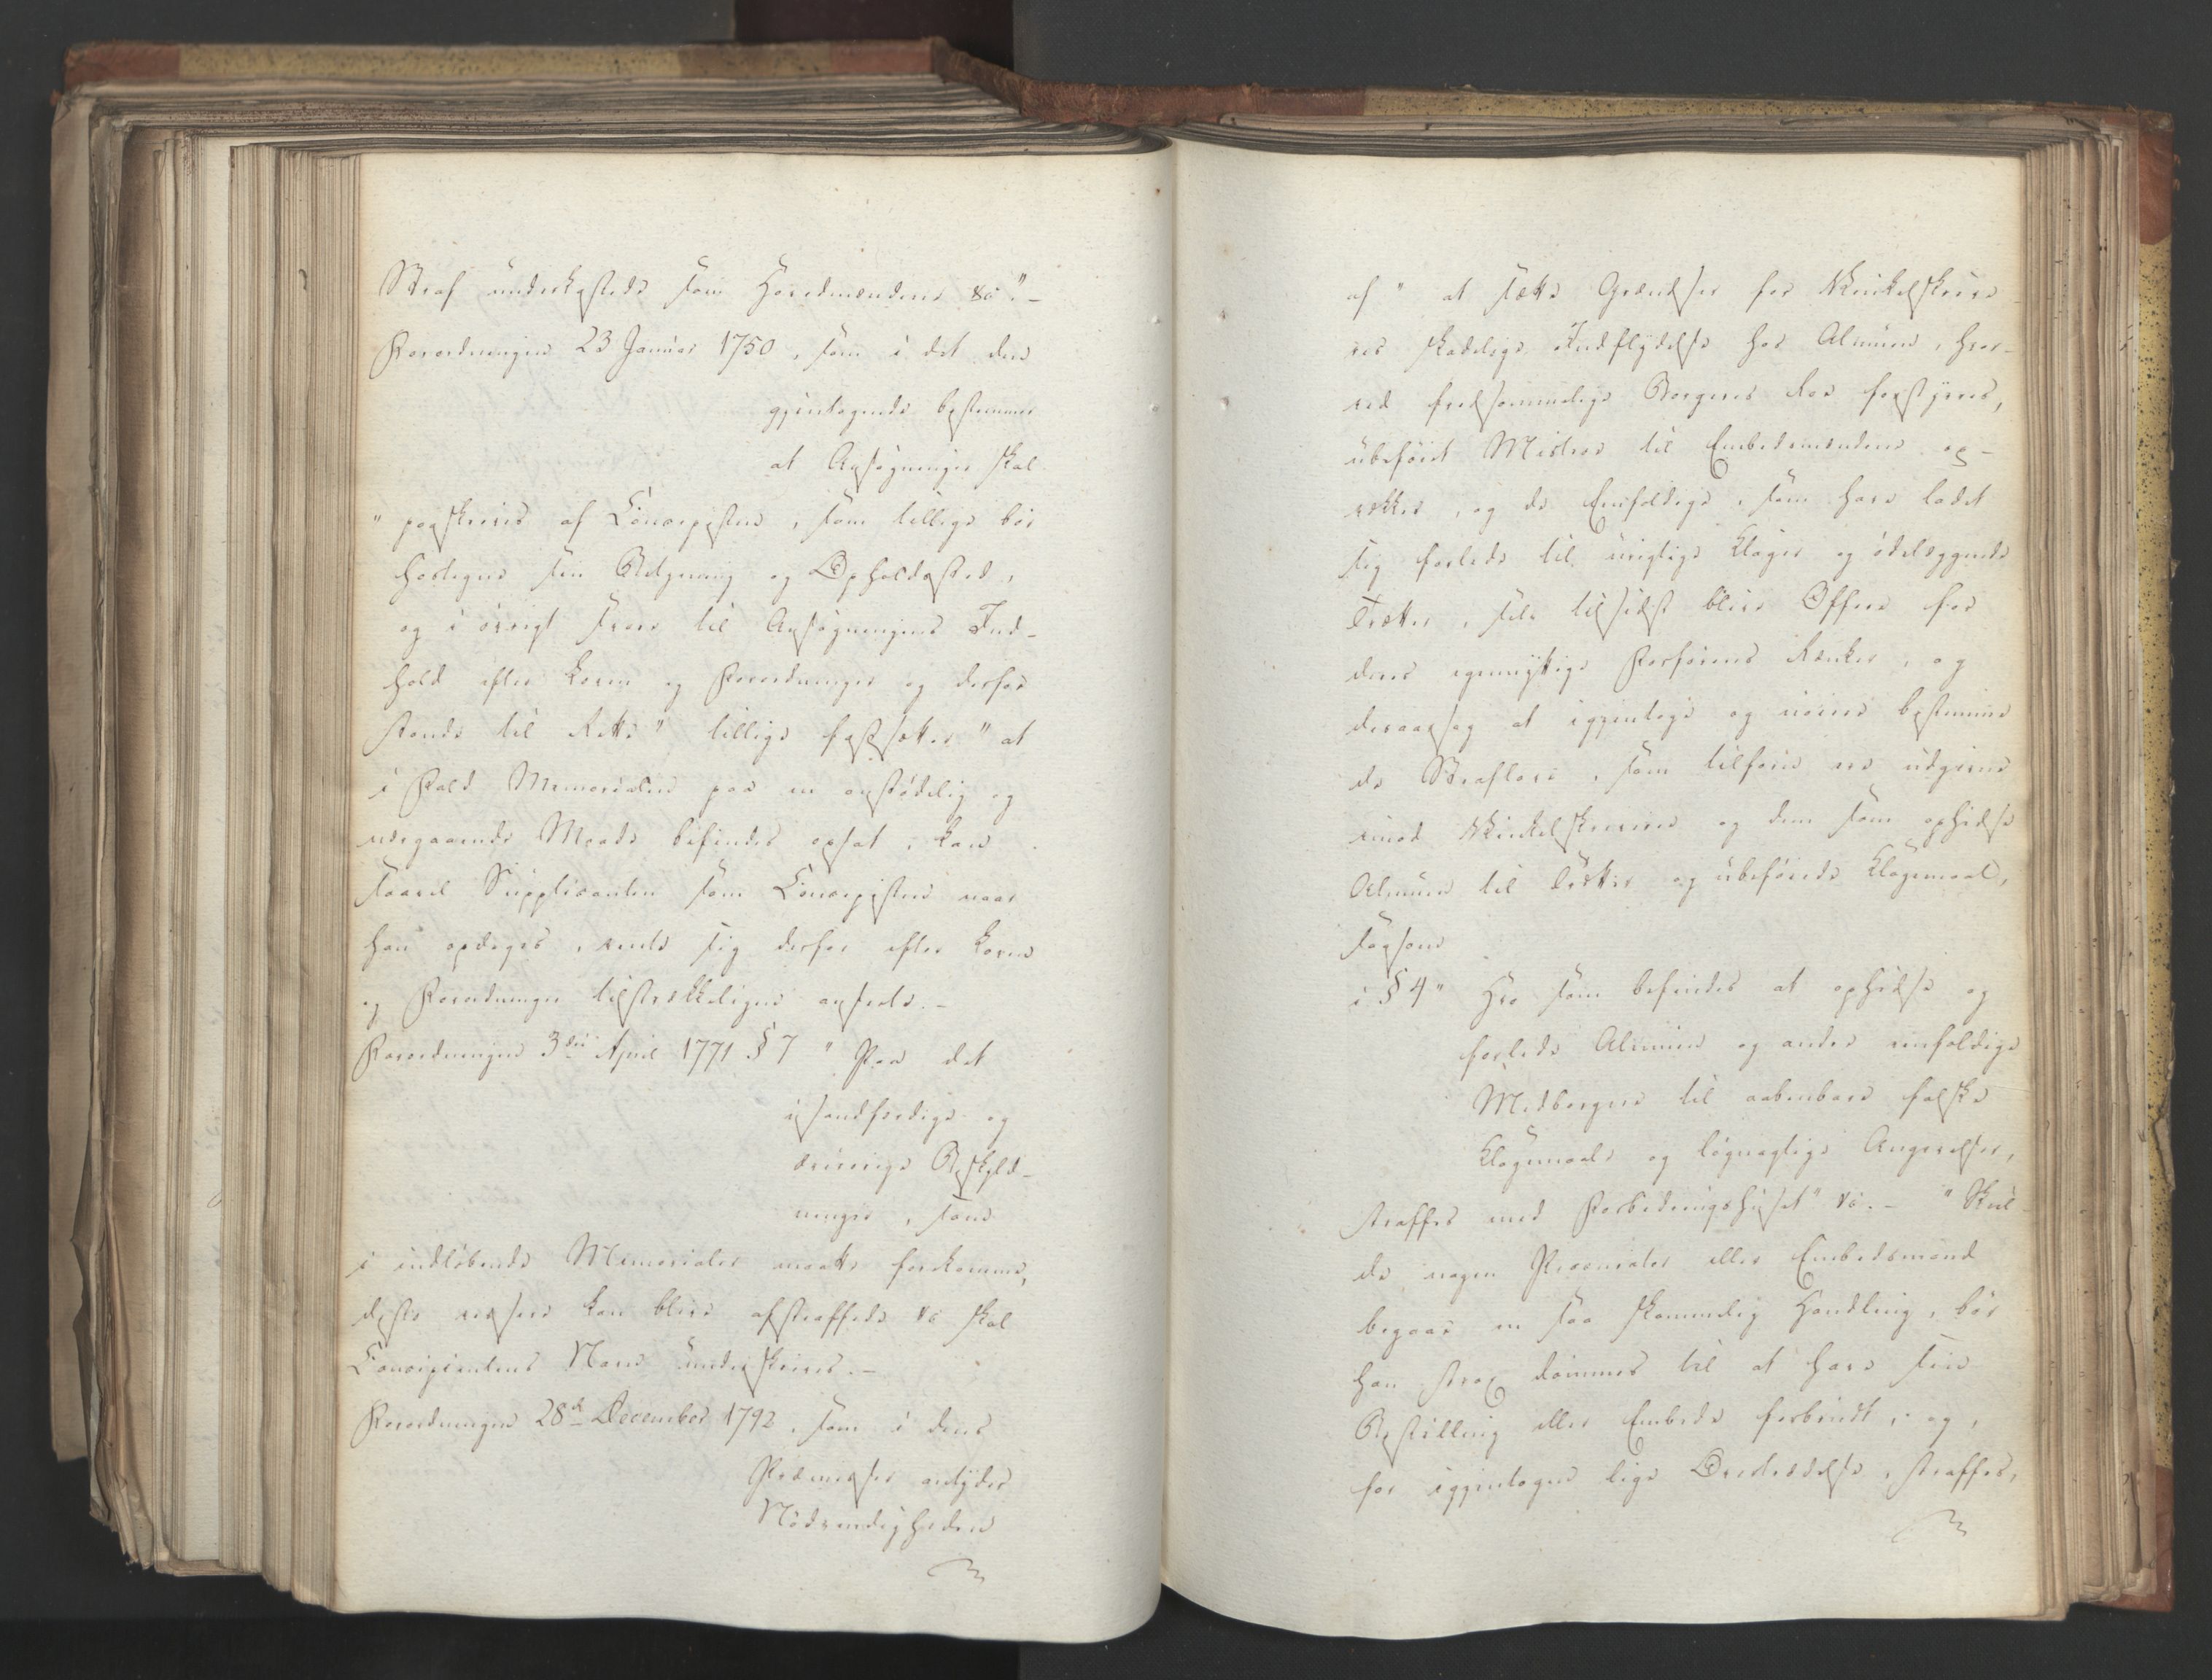 Straf underkastede som Hovedmændene &c".-
Forordningen 23 Januar 1750, som i det den
gjentagende bestemmer
at Ansøgninger skal
"paaskrives af Concipisten, som tillige bør
hostegne sin Betjening og Opholdssted,
og i øvrigt svare til Ansøgningens Ind-
hold efter Loven og Forordninger og derfor
stande til Rette" tillige fastsætter "at
i Fald Memorialen paa en anstødelig og
nærgaaende Maade befindes opsat, kan
saavel Supplicanten som Concipisten naar
han opdages, vente sig derfor efter Loven
og Forordninger tilstrækkeligen anseete.-
Forordningen 3die April 1771 § 7 "Paa det
usandfærdige og
ærerørige Beskyld-
ninger, som
i indløbende Memorialer maatte forekomme,
desto vissere kan blive afstraffede &c skal
Concipientens Navn underskrives.-
Forordningen 28d December 1792, som i dens
Præmisser antyder
Nødvendigheden
af "at sætte Grændser for Vinkelskrive-
res skadelige Indflydelse hos Almuen, hvor-
ved fredsommelige Borgeres Roe forstyrres,
ubeføiet Mistroe til Embedsmændene op-
vækkes, og de Eenfoldige, som have ladet
sig forlede til urigtige Klager og ødelæggende
Trætter, selv tilsidst blive Offere for
deres egennyttige Forføreres Rænker, og
deraarsag at igjentage og nøiere bestemme
de Straflove, som tilforn ere udgivne
imod Vinkelskrivere og dem som ophidse
Almuen til Trætter og ubeføiede Klagemaal,
saasom
i § 4 "Hvo som befindes at ophidse og
forlede Almuen og andre eenfoldige
Medborgere til aabenbare falske
Klagemaale og løgnagtige Angivelser,
straffes med Forbedringshuset" &c.- "Skul-
de nogen Procurator eller Embedsmand
begaae en saa skammelig Handling, bør
han strax dømmes til at have sin
Bestilling eller Embede forbrudt, og,
for igjentagne lige Overtrædelse, straffes,